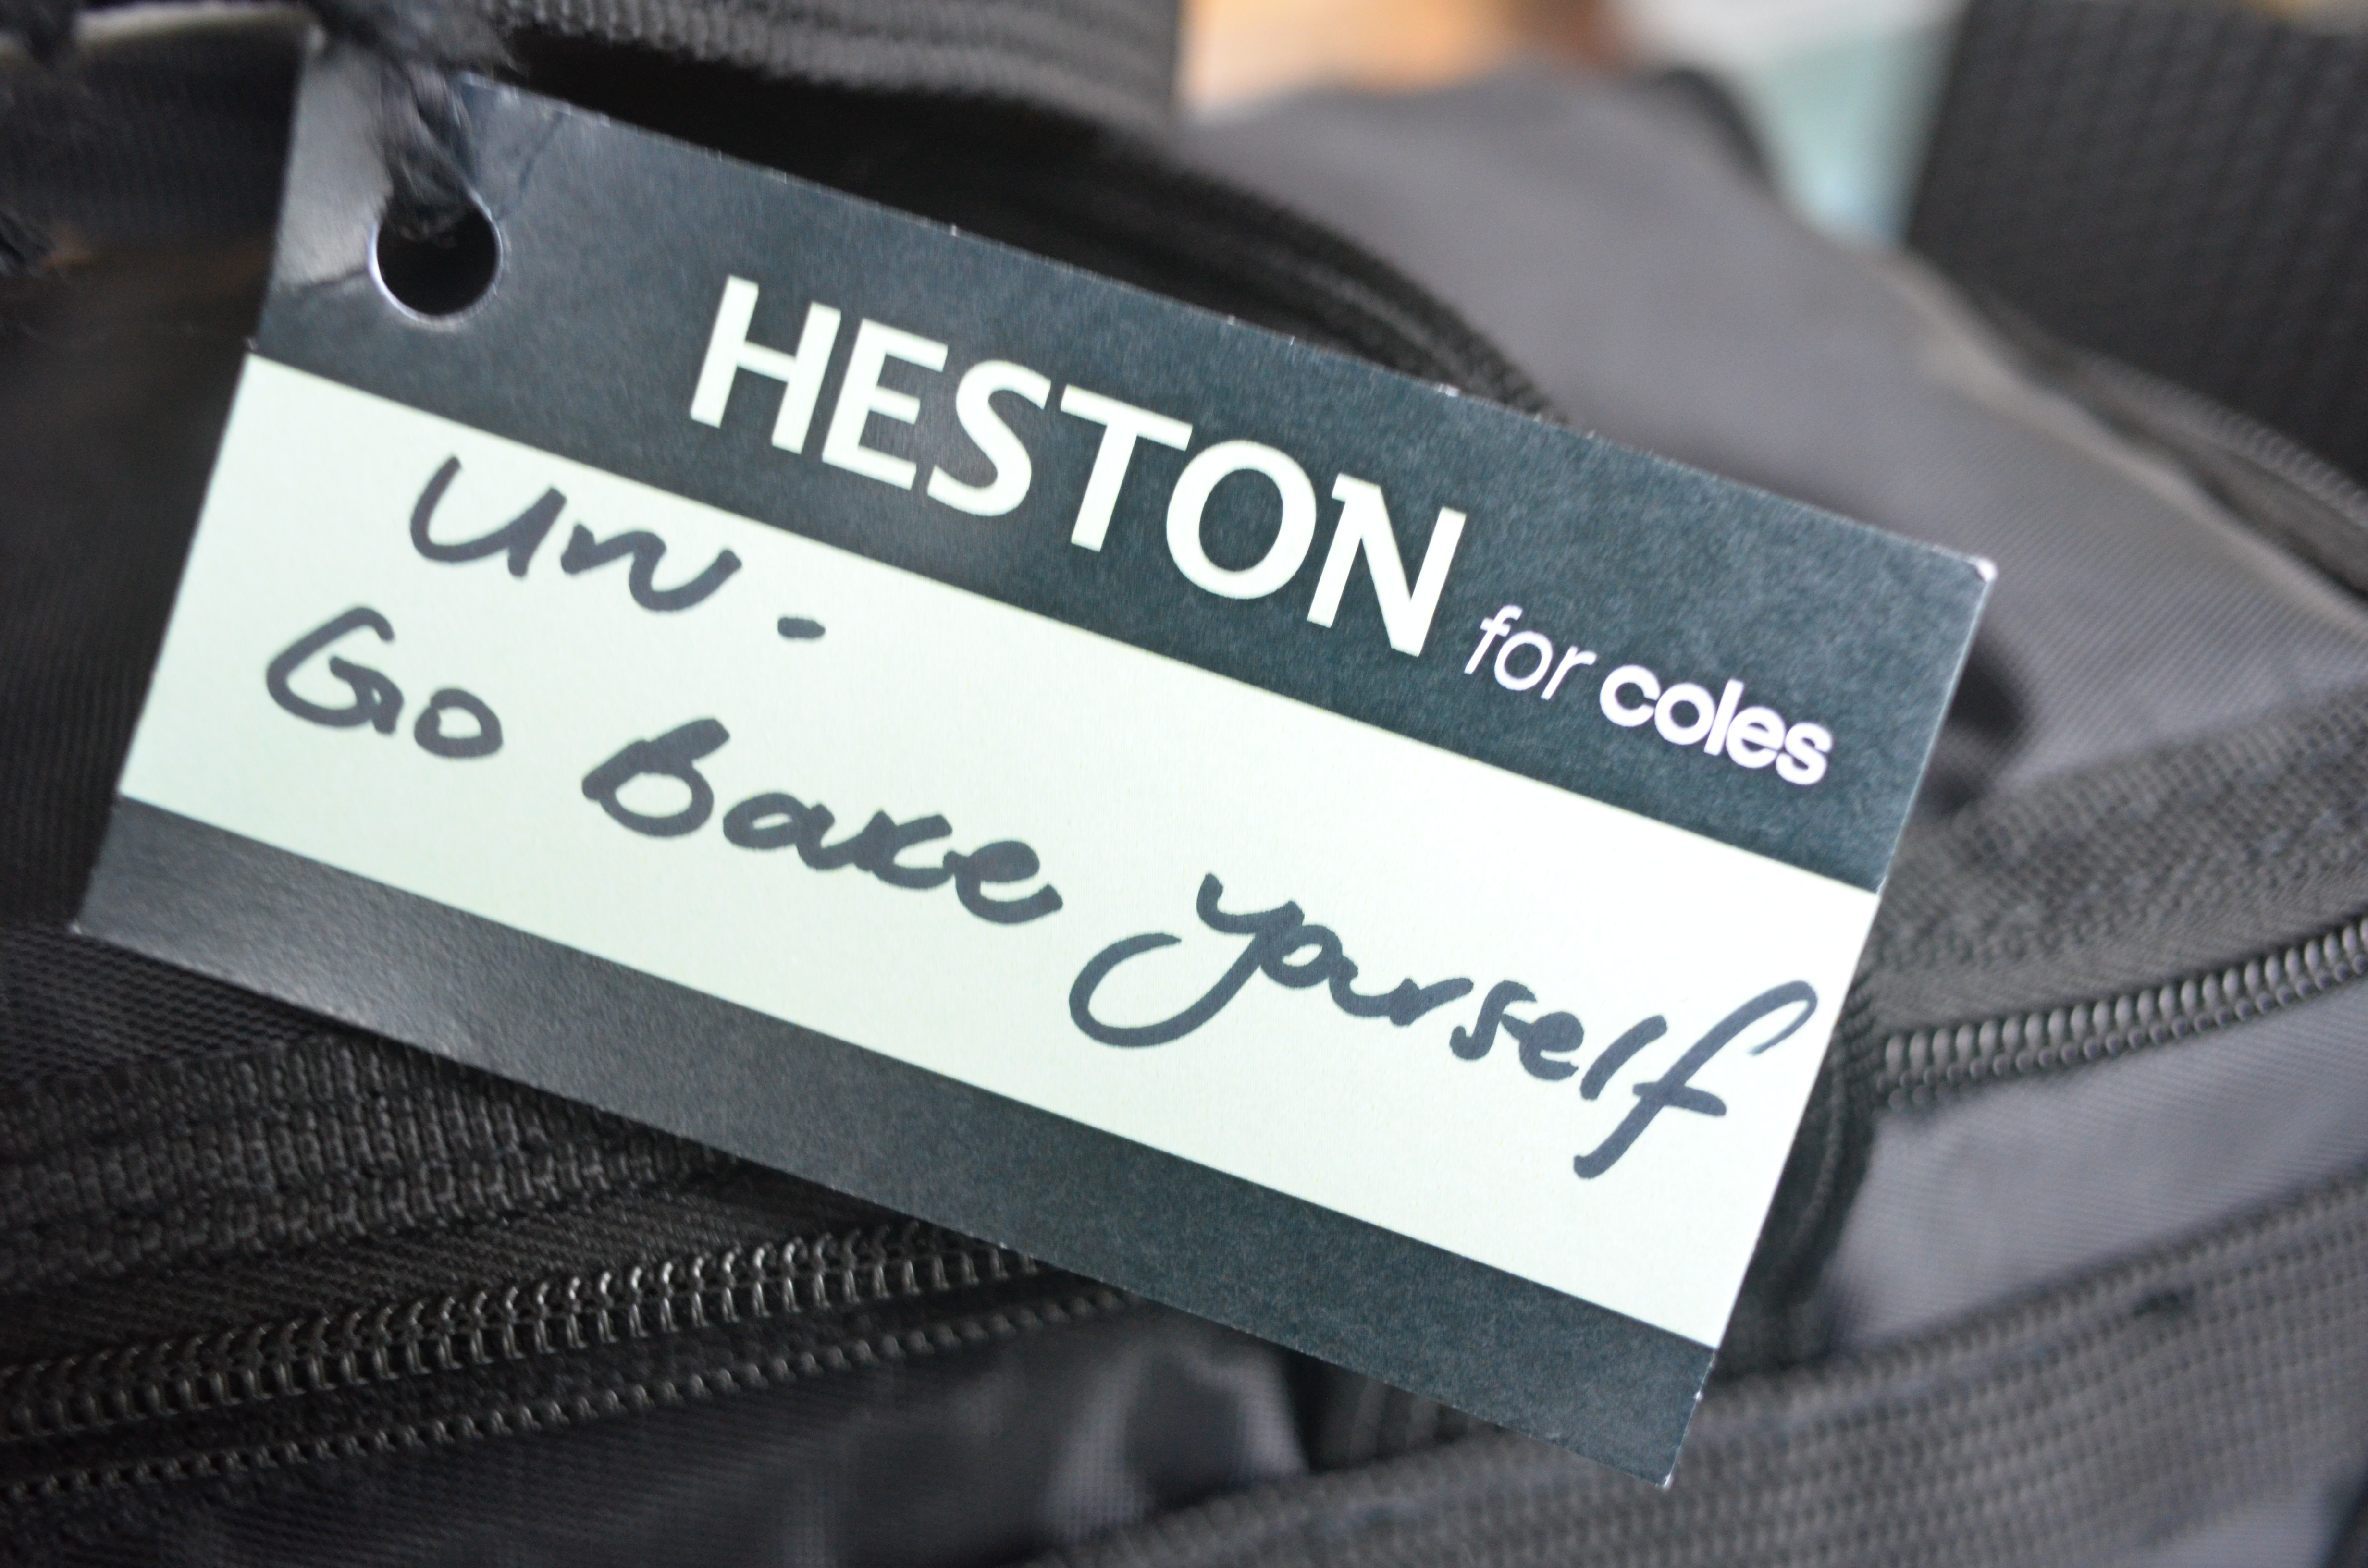 HESTON for coles
Uru -
Go Bake yourself